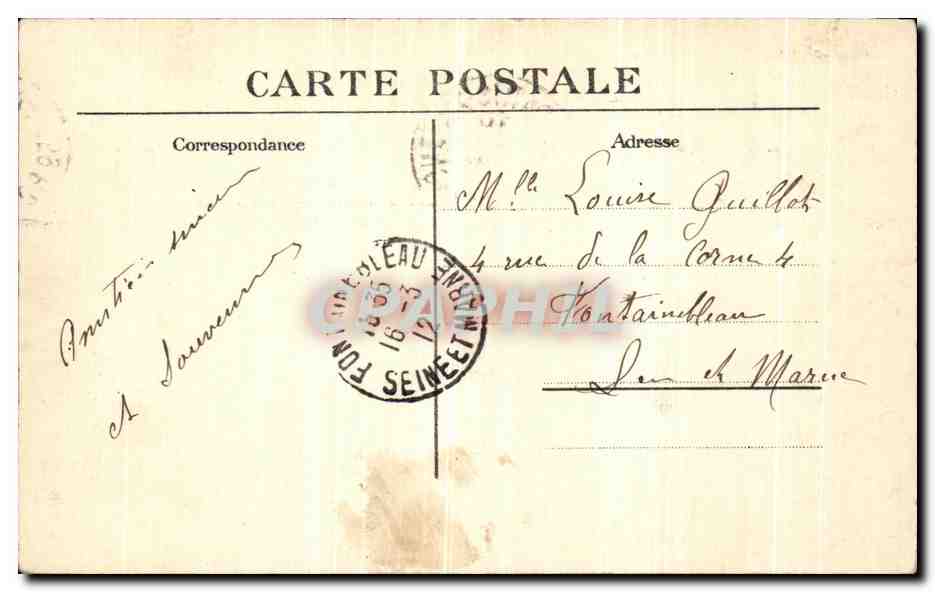 CARTE POSTALE
Correspondance
Adresse
Amitiés
et Souvenirs
Mlle Louise Guillot
4 rue de la Corne 4
Fontainebleau
Sein et Marne
FONTAINEBLEAU
SEINE ET MARNE
18 35
16 - 3
12
CPAPHIL